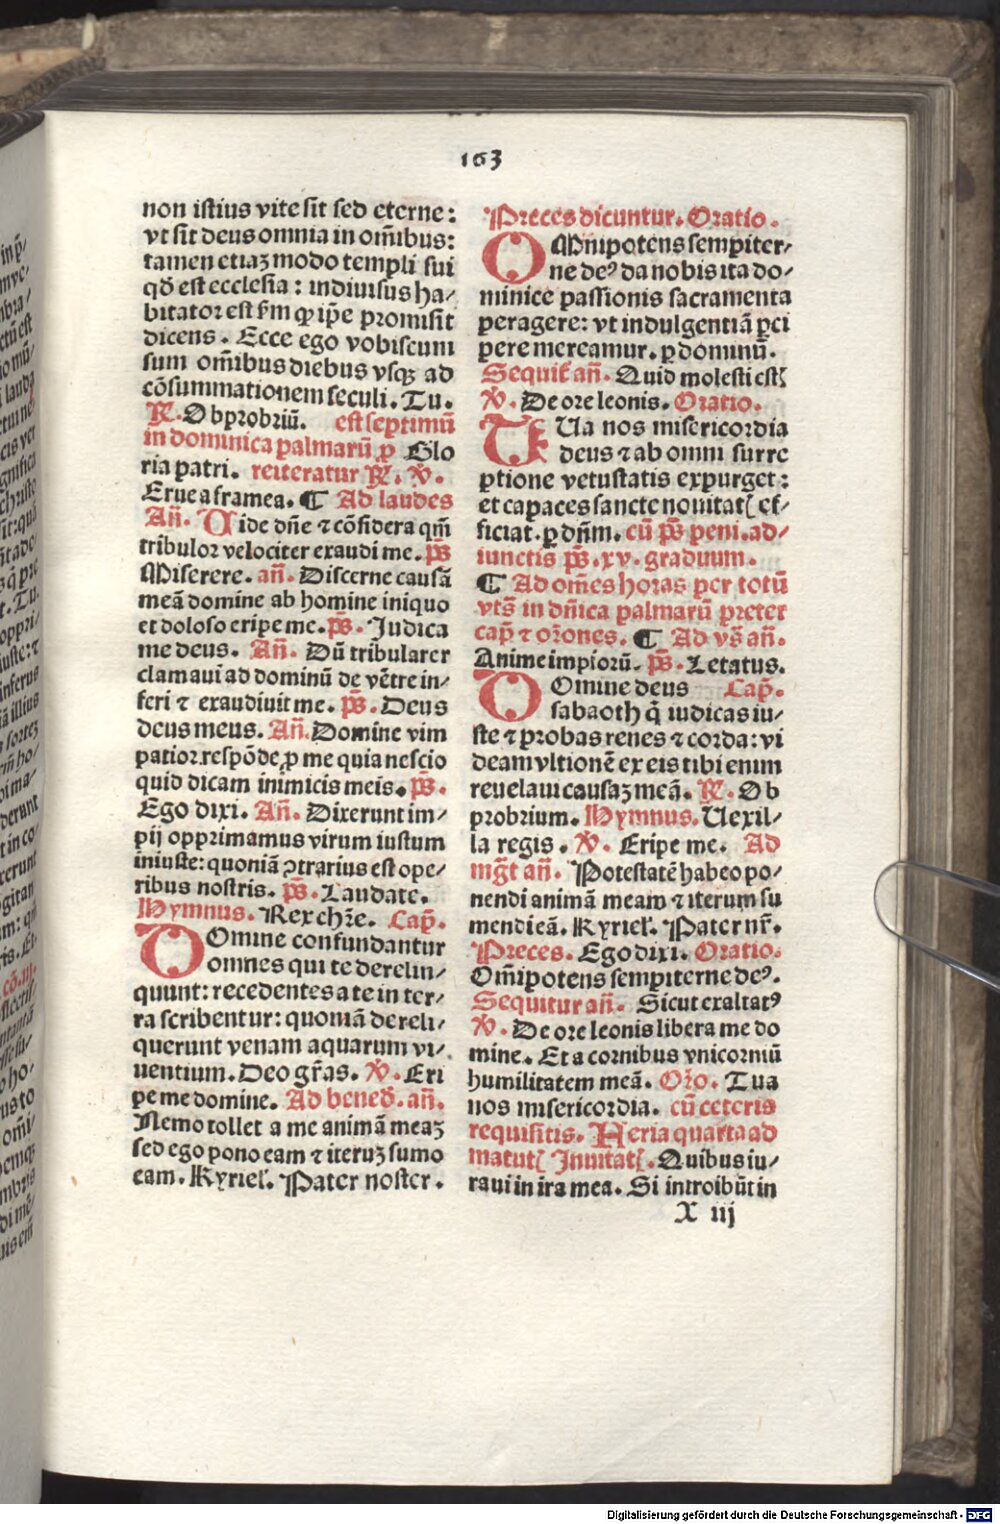 163
non istius vite sit sed eterne:
vt sit deus omnia in om̄ibus:
tamen etiaꝫ modo templi sui
qđ est ecclesia: indiuisus ha⸗
bitator est ẜm ꝙ ip̄e promisit
dicens. Ecce ego vobiscum
sum om̄ibus diebus vsqꝫ ad
cōsummationem seculi. Tu.
℟. Obprobriū. est septimū
in dominica palmarū ꝓ Glo
ria patri. reiteratur ℟. ℣.
Erue a framea. ¶ Ad laudes
Añ. Uide dñe ⁊ cōsidera qm̄
tribulor velociter exaudi me. p̄s
Miserere. añ. Discerne causā
meā domine ab homine iniquo
et doloso eripe me. p̄s. Iudica
me deus. Añ. Dū tribularer
clamaui ad dominū de vētre in⸗
feri ⁊ exaudiuit me. p̄s. Deus
deus meus. Añ. Domine vim
patior respōde ꝓ me quia nescio
quid dicam inimicis meis. p̄s.
Ego dixi. Añ. Dixerunt im⸗
pij opprimamus virum iustum
iniuste: quoniā ꝯtrarius est ope⸗
ribus nostris. p̄s. Laudate.
Hymnus. Rex chr̄e. Cap̄.
DOmine confundantur
omnes qui te derelin⸗
quunt: recedentes a te in ter⸗
ra scribentur: quoniā dereli⸗
querunt venam aquarum vi⸗
uentium. Deo gr̄as. ℣. Eri
pe me domine. Ad bened̄. añ.
Nemo tollet a me animā meaꝫ
sed ego pono eam ⁊ iteruꝫ sumo
eam. Kyriel̄. Pater noster.
Preces dicuntur. Oratio.
OMnipotens sempiter⸗
ne deꝰ da nobis ita do⸗
minice passionis sacramenta
peragere: vt indulgentiā ꝑci
pere mereamur. ꝑ dominū.
Sequit̄ añ. Quid molesti estꝭ
℣. De ore leonis. Oratio.
TUa nos misericordia
deus ⁊ ab omni surre
ptione vetustatis expurget:
et capaces sancte nouitatꝭ ef⸗
ficiat. ꝑ dñm. cū p̄s peni. ad⸗
iunctis p̄s. xv. graduum.
¶ Ad om̄es horas per totū
vts̄ in dñica palmarū preter
cap̄ ⁊ or̄ones. ¶ Ad vs̄ añ.
Anime impiorū. p̄s. Letatus.
DOmine deus Cap̄.
sabaoth q̄ iudicas iu⸗
ste ⁊ probas renes ⁊ corda: vi
deam vltionē ex eis tibi enim
reuelaui causaꝫ meā. ℟. Ob
probrium. Hymnus. Uexil⸗
la regis. ℣. Eripe me. Ad
mḡt añ. Potestatē habeo po⸗
nendi animā meam ⁊ iterum su
mendi eā. Kyriel̄. Pater nr̄.
Preces. Ego dixi. Oratio.
Om̄ipotens sempiterne deꝰ.
Sequitur añ. Sicut exaltatꝰ
℣. De ore leonis libera me do
mine. Et a cornibus vnicorniū
humilitatem meā. Or̄o. Tua
nos misericordia. cū ceteris
requisitis. Feria quarta ad
matutꝭ Inuitatꝭ. Quibus iu⸗
raui in ira mea. Si introibūt in
X iij
Digitalisierung gefördert durch die Deutsche Forschungsgemeinschaft - DFG